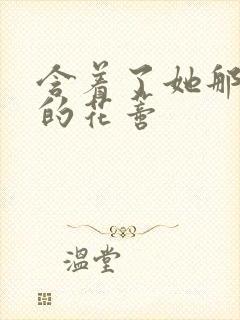 含着了她那
的花蕾
温堂